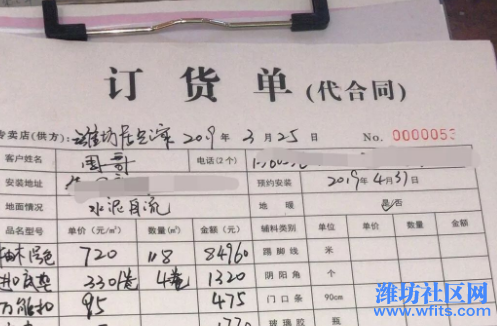 订货单(代合同)
专卖店(供方): 潍坊居 2019年3月25日 No. 0000053
客户姓名 周哥 电话(2个)
安装地址 预约安装 2019年4月3日
地面情况 水泥自流 地暖 是否
品名名型号 单价(元/㎡) 数量(㎡) 金额(元) 辅料类别 单位 单价 数量 金额(元)
柚木 色 720 118 84960 踢脚线 米
进口底垫 330/卷 4卷 1320 阴阳角 个
万能扣 95 475 门口条 90cm
玻璃胶 瓶
潍坊社区网
www.wfits.com